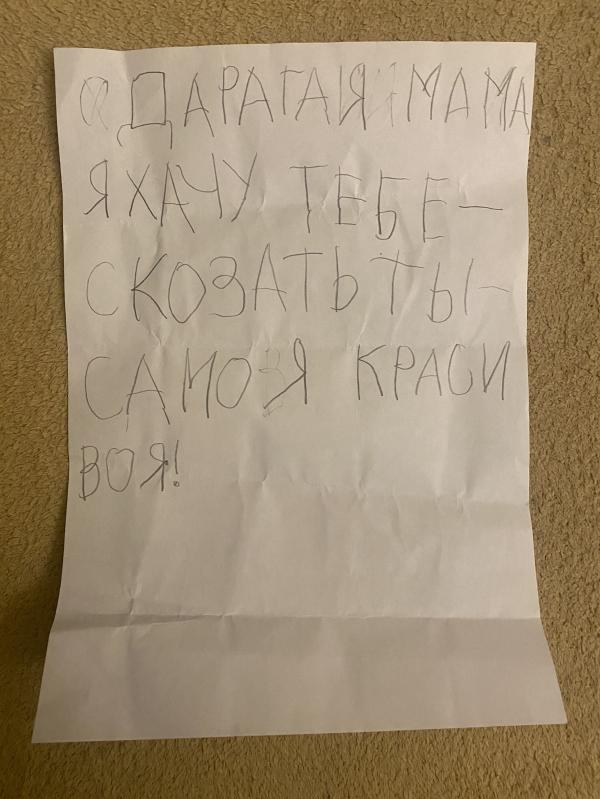 ДАРАГАЯ МАМА
Я ХАЧУ ТЕБЕ-
СКОЗАТЬ ТЫ-
САМОЯ КРАСИ
ВОЯ!